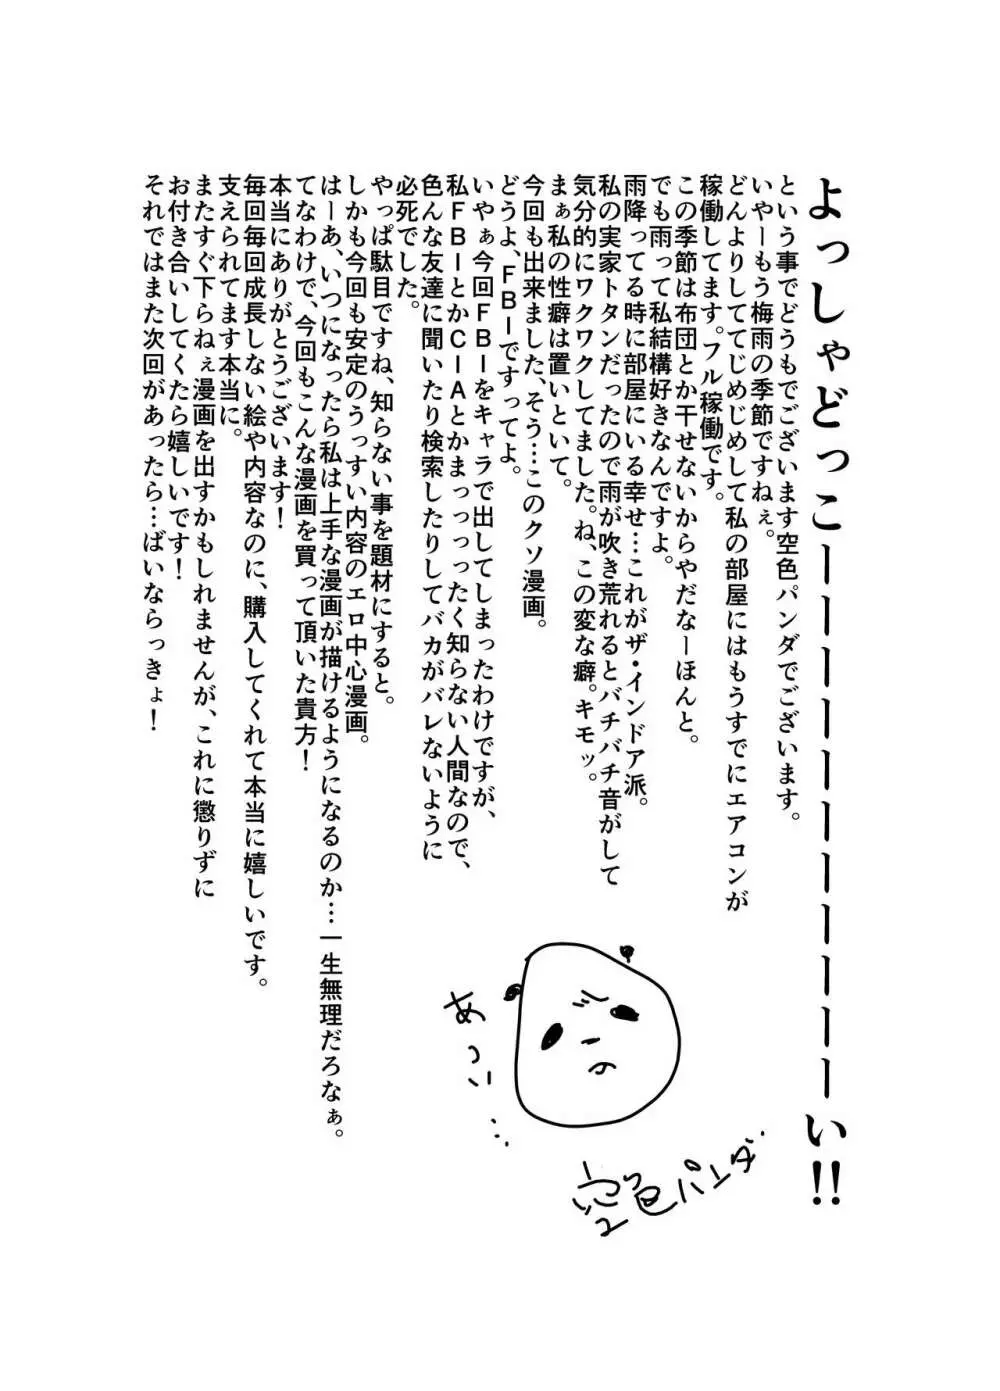 よっしゃどっこーーーーーーーーーーーい!!
という事でどうもでございます空色パンダでございます。
いやーもう梅雨の季節ですねぇ。
どんよりしててじめじめして私の部屋にはもうすでにエアコンが
稼働してます。フル稼働です。
この季節は布団とか干せないからやだなーほんと。
でも雨って私結構好きなんですよ。
雨降ってる時に部屋にいる幸せ…これがザ・インドア派。
私の実家トタンだったので雨が吹き荒れるとバチバチ音がして
気分的にワクワクしてました。ね、この変な癖。キモッ。
まぁ私の性癖は置いといて。
今回も出来ました、そう…このクソ漫画。
どうよ、FBIですってよ。
いやぁ今回FBIをキャラで出してしまったわけですが、
私FBIとかCIAとかまっっっったく知らない人間なので、
色んな友達に聞いたり検索したりしてバカがバレないように
必死でした。
やっぱ駄目ですね、知らない事を題材にすると。
しかも今回も安定のうっすい内容のエロ中心漫画。
はーあ、いつになったら私は上手な漫画が描けるようになるのか…一生無理だろなぁ。
てなわけで、今回もこんな漫画を買って頂いた貴方!
本当にありがとうございます!
毎回毎回成長しない絵や内容なのに、購入してくれて本当に嬉しいです。
支えられてます本当に。
またすぐ下らねぇ漫画を出すかもしれませんが、これに懲りずに
お付き合いしてくたら嬉しいです!
それではまた次回があったら…ばいならっきょ!
あつい…
空色パンダ